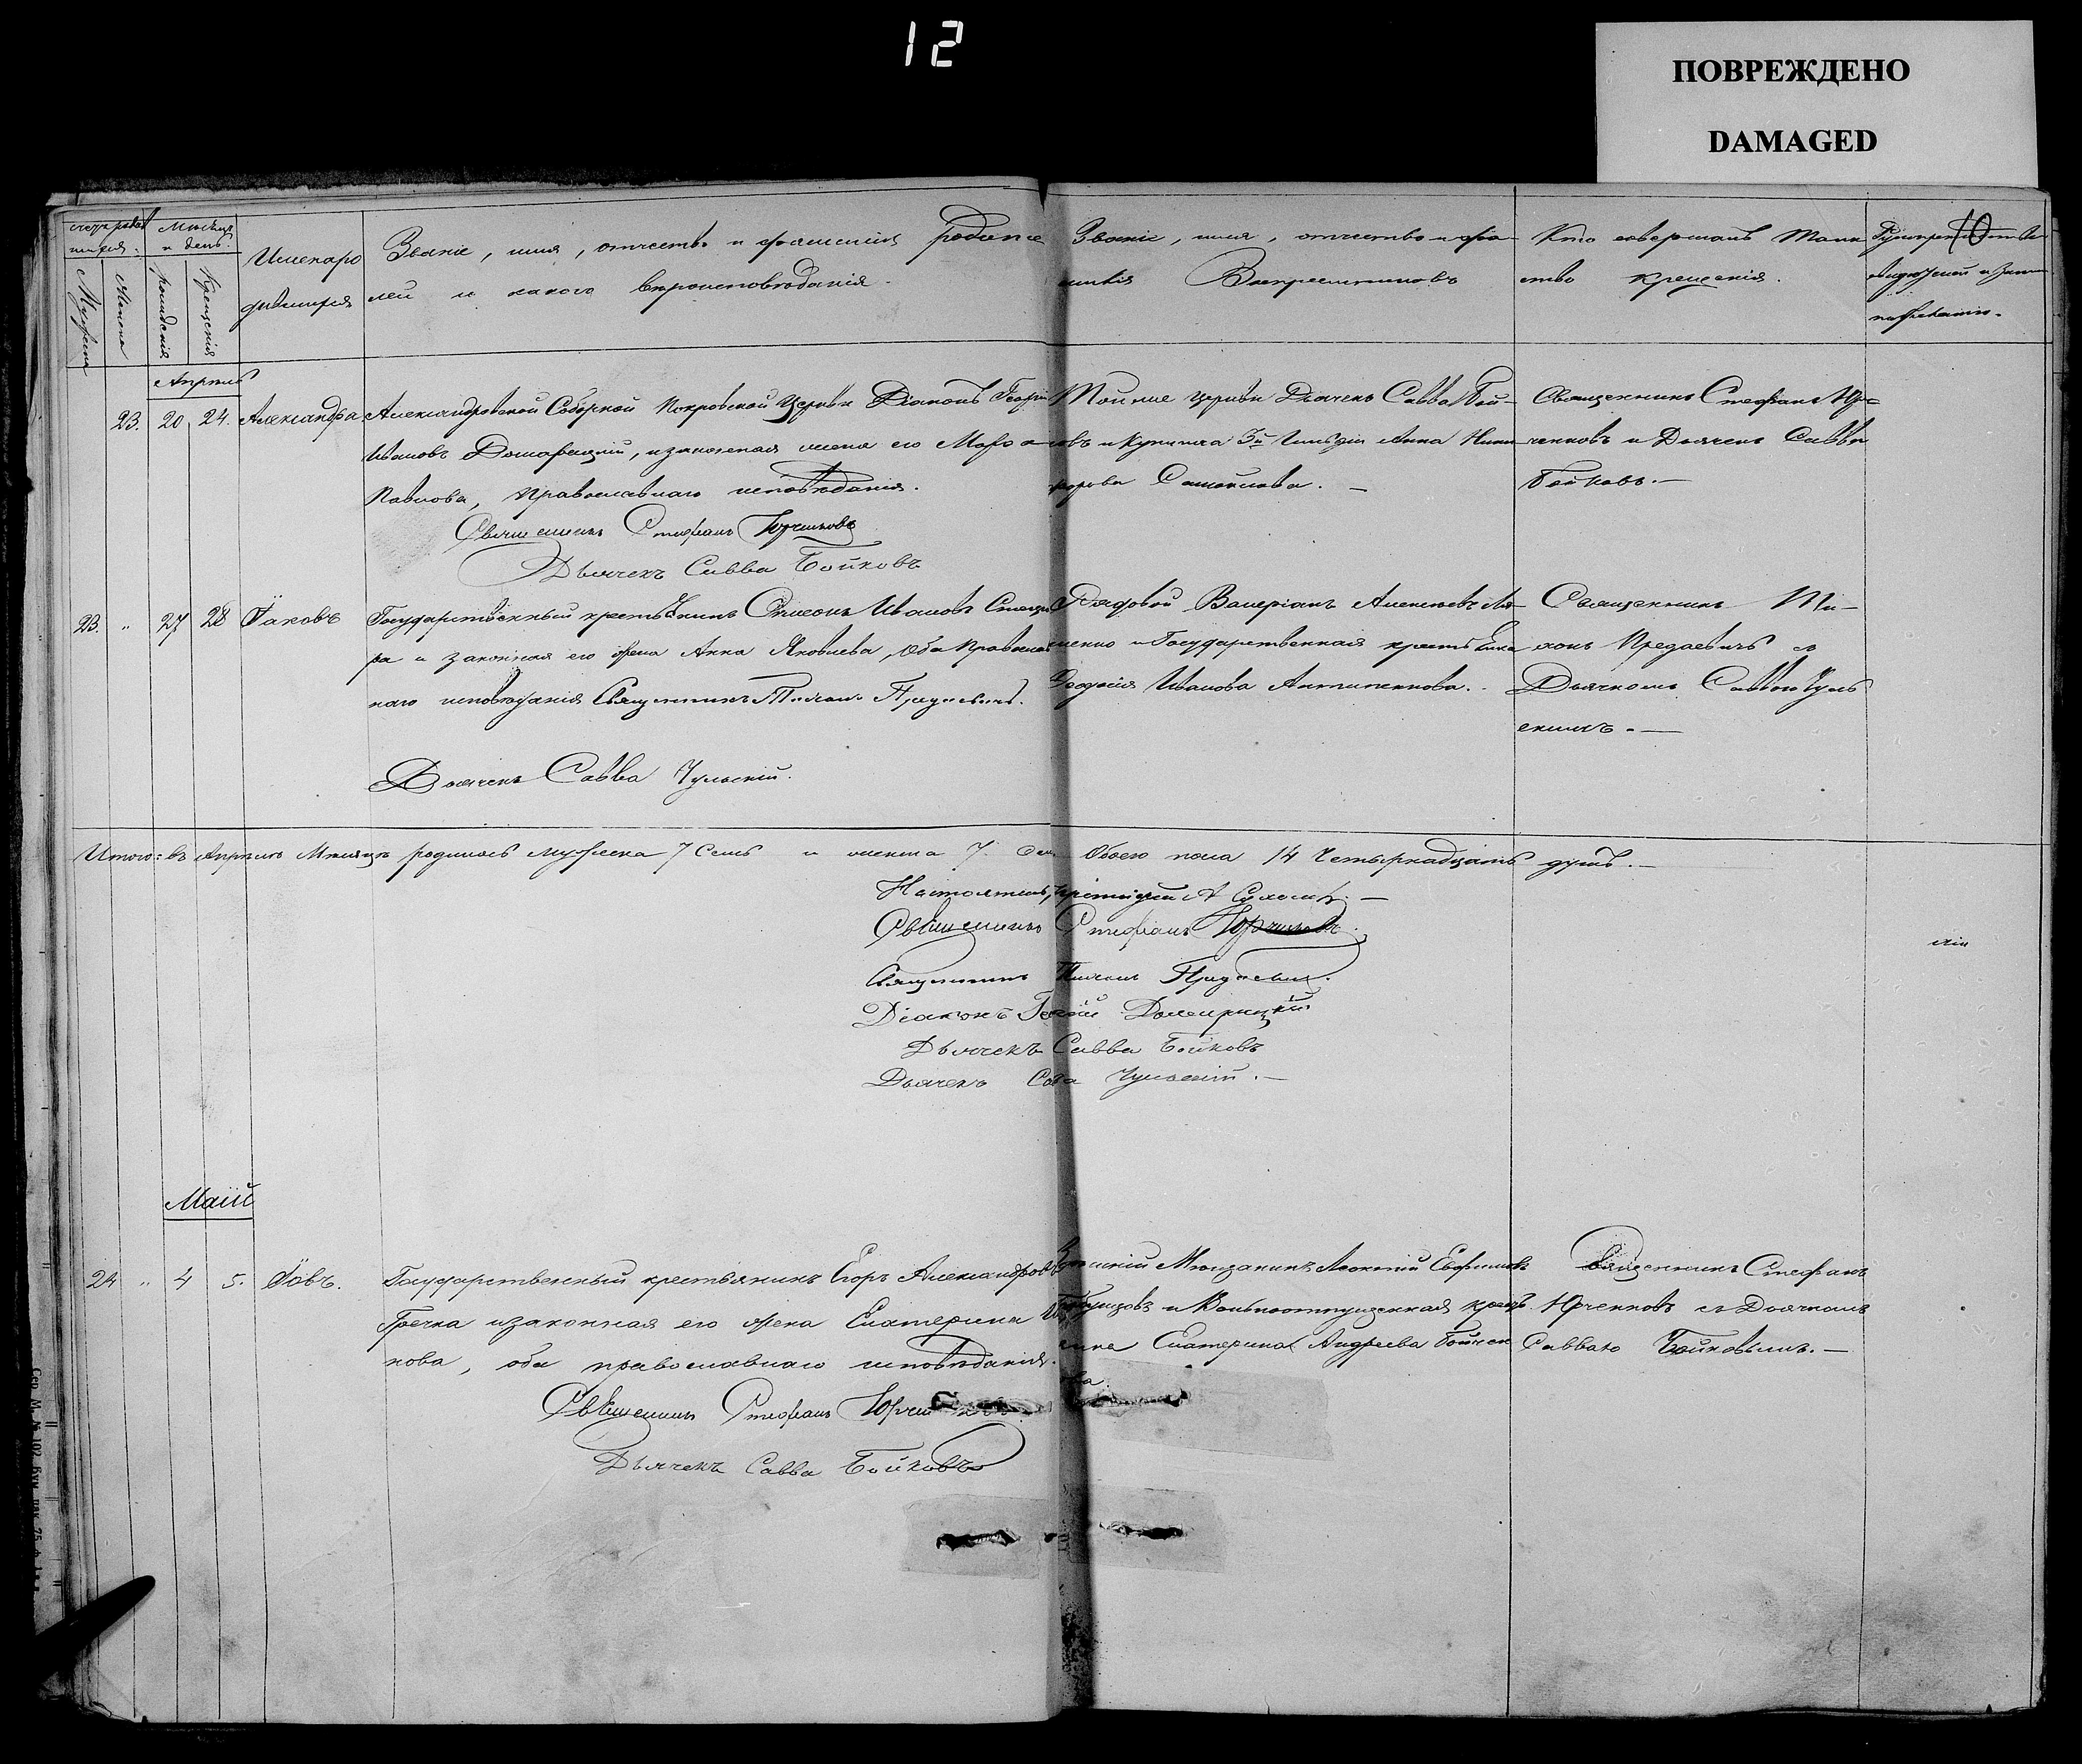 12
ПОВРЕЖДЕНО
DAMAGED
10
Мѣсяцъ
и день.
Мужеска
Женска
рожденія
Крещенія
Имена ро
дившихся
Званіе, имя, отчество и фамилія родите
лей и какого вѣроисповѣданія.
Званіе, имя, отчество и фа-
милія Воспреемниковъ
Кто совершалъ Таин
ство крещенія.
Апрель
23. 20 24. Александра
Александровской Соборной Покровской Церкви Діаконъ Георгій
Ивановъ Домарецкій, и законная жена его Марѳа
Павлова, Православнаго исповѣданія.
Священникъ Стефанъ Юрченковъ
Дьячекъ Савва Бойковъ
Той же церкви Дьячекъ Савва Бой-
ковъ и Купчиха 3й Гильдіи Анна Ники
форова Самойлова. —
Священникъ Стефанъ Юр-
ченковъ и Дьячекъ Савва
Бойковъ. —
23. " 27 28 Іаковъ
Государственный крестьянинъ Симеонъ Ивановъ
ра и законная его жена Анна Яковлева, Оба Православ
наго исповѣданія Священникъ Тихонъ Предаевичъ.
Дьячекъ Савва Чульскій.
Рядовой Валеріанъ Алексѣевъ
и Государственная крестьянка
Ѳеодосія Иванова Антипенкова. -
Священникъ Ти-
хонъ Предаевичъ съ
Дьячкомъ Саввою Чуль
скимъ. —
Итого: въ Апрелѣ Мѣсяцѣ родилось мужеска 7 Семь и женска 7. Семь Обоего пола 14 Четырнадцать душъ. —
Настоятель, протоіерей А
Священникъ Стефанъ Юрченковъ.
Священникъ Тихонъ Предаевичъ.
Діаконъ Георгій Домарецкій
Дьячекъ Савва Бойковъ
Дьячекъ Савва Чульскій. —
Маій
24 " 4 5. Іовъ.
Государственный крестьянинъ Егоръ Александровъ
Гречка и законная его жена Екатерина
нова, оба православнаго исповѣданія.
Священникъ Стефанъ Юрченковъ
Дьячекъ Савва Бойковъ
Мѣщанинъ Леонтій Ефимовъ
и Вольноотпущенная крестья
нка Екатерина Андреева
ва.
Священникъ Стефанъ
Юрченковъ съ Дьячкомъ
Саввою Бойковымъ. —